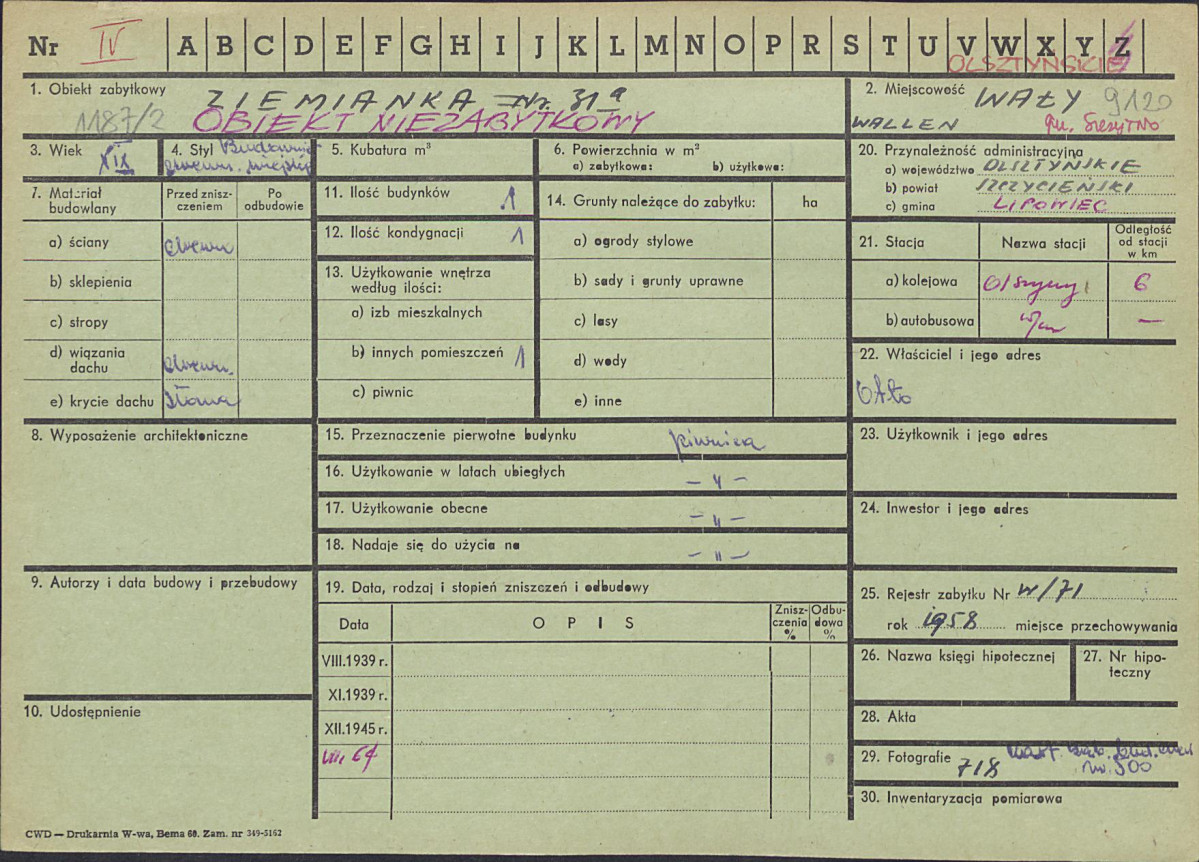 Nr IV A B C D E F G H I J K L M N O P R S T U V W X Y Z
OLSZTYŃSKIE
1. Obiekt zabytkowy ZIEMIANKA Nr. 31a
1187/2 OBIEKT NIEZABYTKOWY
2. Miejscowość WAŁY 9120
WALLEN gm. Szczytno
3. Wiek XIX
4. Styl Budown.
drewn.
5. Kubatura m³
6. Powierzchnia w m²
a) zabytkowa: b) użytkowa:
7. Materiał budowlany
Przed zniszczeniem
Po odbudowie
a) ściany drewn
b) sklepienia
c) stropy
d) wiązania dachu drewn.
e) krycie dachu słoma
8. Wyposażenie architektoniczne
9. Autorzy i data budowy i przebudowy
10. Udostępnienie
11. Ilość budynków 1
12. Ilość kondygnacji 1
13. Użytkowanie wnętrza
według ilości:
a) izb mieszkalnych
b) innych pomieszczeń 1
c) piwnic
14. Grunty należące do zabytku: ha
a) ogrody stylowe
b) sady i grunty uprawne
c) lasy
d) wody
e) inne
15. Przeznaczenie pierwotne budynku piwnica
16. Użytkowanie w latach ubiegłych – " –
17. Użytkowanie obecne – " –
18. Nadaje się do użycia na – " –
19. Data, rodzaj i stopień zniszczeń i odbudowy
Data
O P I S
Zniszczenia %
Odbudowa %
VIII.1939 r.
XI.1939 r.
XII.1945 r.
VII. 64
20. Przynależność administracyjna
a) województwo OLSZTYŃSKIE
b) powiat SZCZYCIEŃSKI
c) gmina LIPOWIEC
21. Stacja
Nazwa stacji
Odległość
od stacji
w km
a) kolejowa Olszyny 6
b) autobusowa w/m —
22. Właściciel i jego adres
23. Użytkownik i jego adres
24. Inwestor i jego adres
25. Rejestr zabytku Nr W/71
rok 1958 miejsce przechowywania
26. Nazwa księgi hipotecznej
27. Nr hipoteczny
28. Akta
29. Fotografie 718
nr. 300
30. Inwentaryzacja pomiarowa
CWD — Drukarnia W-wa, Bema 60. Zam. nr 349-5162